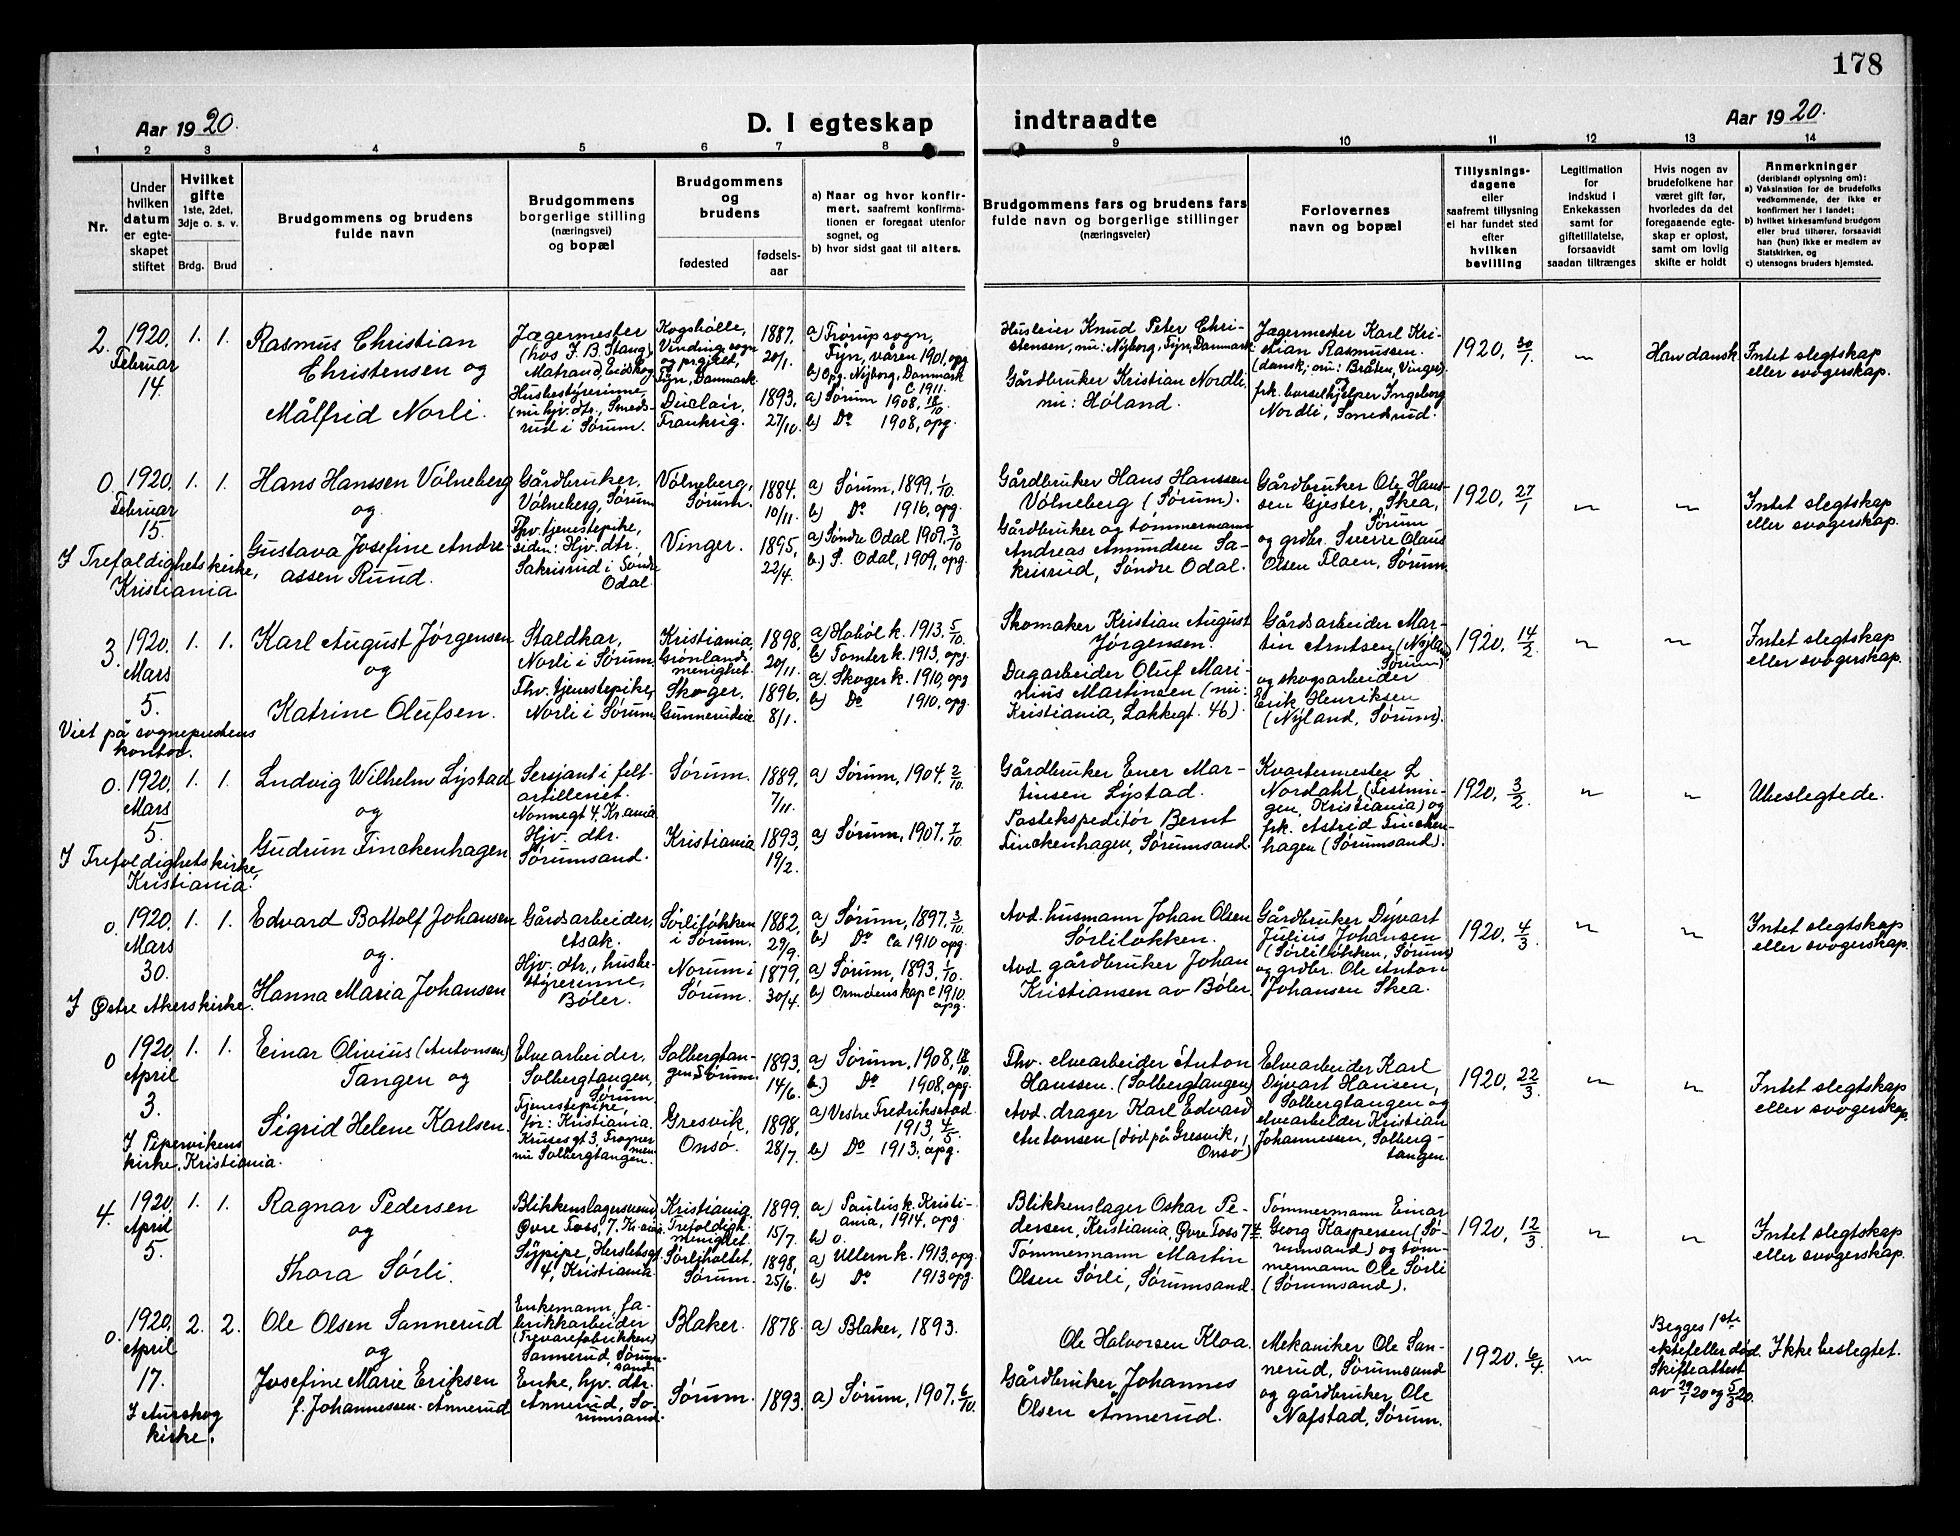 178
Aar 1920.
D. I egteskap indtraadte
Aar 1920.
1 2 3 4 5 6 7 8 9 10 11 12 13 14
Nr.
Under hvilken datum er egteskapet stiftet
Hvilket gifte 1ste, 2det, 3dje o. s. v.
Brdg. Brud
Brudgommens og brudens fulde navn
Brudgommens borgerlige stilling (næringsvei) og bopæl
Brudgommens og brudens
fødested
fødselsaar
a) Naar og hvor konfirmert, saafremt konfirmationen er foregaat utenfor sognet, og
b) hvor sidst gaat til alters.
Brudgommens fars og brudens fars fulde navn og borgerlige stillinger (næringsveier)
Forlovernes navn og bopæl
Tillysningsdagene eller saafremt tillysning ei har fundet sted efter hvilken bevilling
Legitimation for indskud i Enkekassen samt for giftetillatelse, forsaavidt saadan tiltrænges
Hvis nogen av brudefolkene har været gift før, hvorledes da det foregaaende egteskap er opløst, samt om lovlig skifte er holdt
Anmerkninger (deriblandt oplysning om):
a) Vaksination for de brudefolks vedkommende, der ikke er konfirmert her i landet;
b) hvilket kirkesamfund brudgom eller brud tilhører, forsaavidt han (hun) ikke er medlem av Statskirken, og
c) utensogns bruders hjemsted.
2. 1920, Februar 14
1. 1.
Rasmus Christian
Christensen og
Målfrid Norli.
Jægermester
(hos J. B. Stang)
Matrand, Eidskog
Husbestyrerinne,
(nu hjv. dtr., Smeds-
rud i Sørum.
Kogshølle,
Vinding sogn
og prgjket,
Fyn, Danmark.
Duclair,
Frankrig.
1887. 20/1.
1893, 27/10.
a) Trørup sogn,
Fyn, våren 1901, opg
b) Opg. Nyborg, Danmark
c. 1911.
a) Sørum 1908, 18/10
b) Do 1908, opg.
Husleier Knud Peter Chri-
stensen, nu: Nyborg, Fyn, Danmark
Gårdbruker Kristian Nordli
nu: Høland.
Jægermester Karl Kri-
stian Rasmussen.
(dansk; nu: Bråten, Vinger)
og
frk. barselhjelper Ingeborg
Nordli, Smedsrud.
1920, 30/1
"
Han dansk.
Intet slegtskap
eller svogerskap.
0. 1920, Februar 15.
I Trefoldighetskirke,
Kristiania
1. 1.
Hans Hanssen Vølneberg
og
Gustava Josefine Andre-
assen Ruud.
Gårdbruker,
Vølneberg, Sørum
Fhv. tjenestepike,
siden: Hjv. dtr.
Sakrisrud i Søndre
Odal
Vølneberg,
Sørum.
Vinger.
1884. 10/11.
1895, 22/4.
a) Sørum, 1899. 1/10.
b) Do 1916, opg.
a) Søndre Odal 1909. 3/10
b.) S. Odal, 1909, opg.
Gårdbruker Hans Hanssen
Vølneberg (Sørum).
Gårdbruker og tømmermann
Andreas Amundsen Sa-
krisrud, Søndre Odal.
Gårdbruker Ole Hans-
sen Gjester, Skea,
Sørum
og grdbr. Sverre Olaus
Olsen Flaen, Sørum.
1920, 27/1
"
"
Intet slegtskap
eller svogerskap.
3. 1920, Mars 5.
Viet på sogneprestens
kontor.
1. 1.
Karl August Jørgensen
og
Katrine Olufsen.
Staldkar,
Norli i Sørum.
Fhv. tjenestepike,
Norli i Sørum
Kristiania,
Grønlands
menighet.
Skoger,
Gunnerudeie
1898, 20/11.
1896. 8/1.
a) Habøl k. 1913. 5/10.
b) Tomter k. 1913, opg.
a) Skoger k. 1910, opg
b) Do 1910, opg.
Skomaker Kristian August
Jørgensen.
Dagarbeider Oluf Mari-
nius Martinsen (nu:
Kristiania, Lakkegt. 46).
Gårdsarbeider Mar-
tin Arntsen (Nyland
Sørum)
og skogsarbeider
Erik Henriksen
(Nyland, Sørum).
1920, 14/2
"
"
Intet slegtskap
eller svogerskap.
0. 1920, Mars 5.
I Trefoldighetskirke,
Kristiania.
1. 1.
Ludvig Wilhelm Lystad
og
Gudrun Finckenhagen
Sersjant i felt-
artilleriet.
Nonnegt 4, Kr.ania
Hjv. dtr.
Sørumsand.
Sørum.
Kristiania
1889. 7/11.
1893, 19/2.
a) Sørum, 1904. 2/10
a) Sørum, 1907. 7/10.
Gårdbruker Ener Mar-
tinsen Lystad.
Postekspeditør Bernt
Finckenhagen, Sørumsand.
Kvartermester L
Nordahl, (Festnin-
gen, Kristiania) og
frk. Astrid Fincken-
hagen (Sørumsand).
1920, 3/2.
"
"
Ubeslegtede.
0. 1920, Mars 30.
I Østre Akers kirke.
1. 1.
Edvard Bottolf Johansen
og.
Hanna Maria Johansen
Gårdsarbeider,
Asak.
Hjv. dtr., huske-
styrerinne,
Bøler.
Sørliløkken
i Sørum.
Norum i
Sørum.
1882, 29/9.
1879, 30/4.
a) Sørum, 1897. 3/10.
b) Do Ca 1910 opg.
a) Sørum, 1893. 1/10.
b) Ormøens kap c 1910.
opg.
Avd. husmann Johan Olsen
Sørliløkken.
Avd. gårdbruker Johan
Kristiansen av Bøler.
Gårdbruker Dyvart
Julius Johansen
(Sørliløkken, Sørum)
og grdbr. Ole Anton
Johansen Skea.
1920, 4/3
"
"
Intet slegtskap
eller svogerskap.
0 1920, April 3.
I Pipervikens
kirke, Kristiania.
1. 1.
Einar Olivius (Antonsen)
Tangen og
Sigrid Helene Karlsen.
Elvearbeider,
Solbergtangen,
Sørum
Tjenestepike,
før: Kristiania.
Krusesgt 3, Frogner men.
nu Solbergtangen.
Solbergtan-
gen, Sørum
Gresvik,
Onsø.
1893, 14/6.
1898, 28/7.
a) Sørum, 1908, 18/10.
b.) Do 1908, opg.
a) Vestre Fredrikstad
1913, 4/5
b) Do 1913, opg.
Fhv. elvearbeider Anton
Hanssen. (Solbergtangen)
Avd. drager Karl Edvard
Antonsen (død på Gresvik,
Onsø)
Elvearbeider Karl
Dyvart Hansen,
Solbergtangen og
elvearbeider Kristian
Johannessen, Solberg-
tangen.
1920, 22/3
"
"
Intet slegtskap
eller svogerskap
4. 1920, April 5.
1. 1.
Ragnar Pedersen
og
Thora Sørli.
Blikkenslagersvend,
Øvre Foss, 7. Kr.ania.
Sypike, Herslebsgt
4, Kristiania
Kristiania,
Trefoldigh.
menighet.
Sørliholtet,
Sørum.
1899. 15/7.
1898, 25/6.
a) Paulus k. Kristi-
ania, 1914, opg.
b) 0.
a) Ullern k. 1913. opg.
b) Do 1913 opg.
Blikkenslager Oskar Pe-
dersen, Kristiania, Øvre Foss 7
Tømmermann Martin
Olsen Sørli, Sørumsand.
Tømmermann Einar
Georg Kaspersen (Sø-
rumsand) og tøm-
mermann Ole Sørli
(Sørumsand).
1920, 12/3.
"
"
Intet slegtskap
eller svogerskap.
0. 1920, April 17.
I Aurskog
kirke.
2. 2.
Ole Olsen Sannerud
og
Josefine Marie Eriksen
f. Johannessen-Annerud
Enkemann, fa-
brikkarbeider
(Trevarefabrikken)
Sannerud, Sørum-
sand.
Enke, hjv. dtr.
Annerud, Sø-
rumsand.
Blaker.
Sørum.
1878.
1893.
a) Blaker, 1893.
a) Sørum, 1907. 6/10.
Ole Halvorsen Kloa
Gårdbruker Johannes
Olsen Annerud.
Mekaniker Ole San-
nerud, Sørumsand
og gårdbruker Ole
Nafstad, Sørum.
1920, 6/4
"
Begges 1ste
ektefeller død.
Skifteattest
av 29/1 20 og 5/3 20.
Ikke beslegtet.